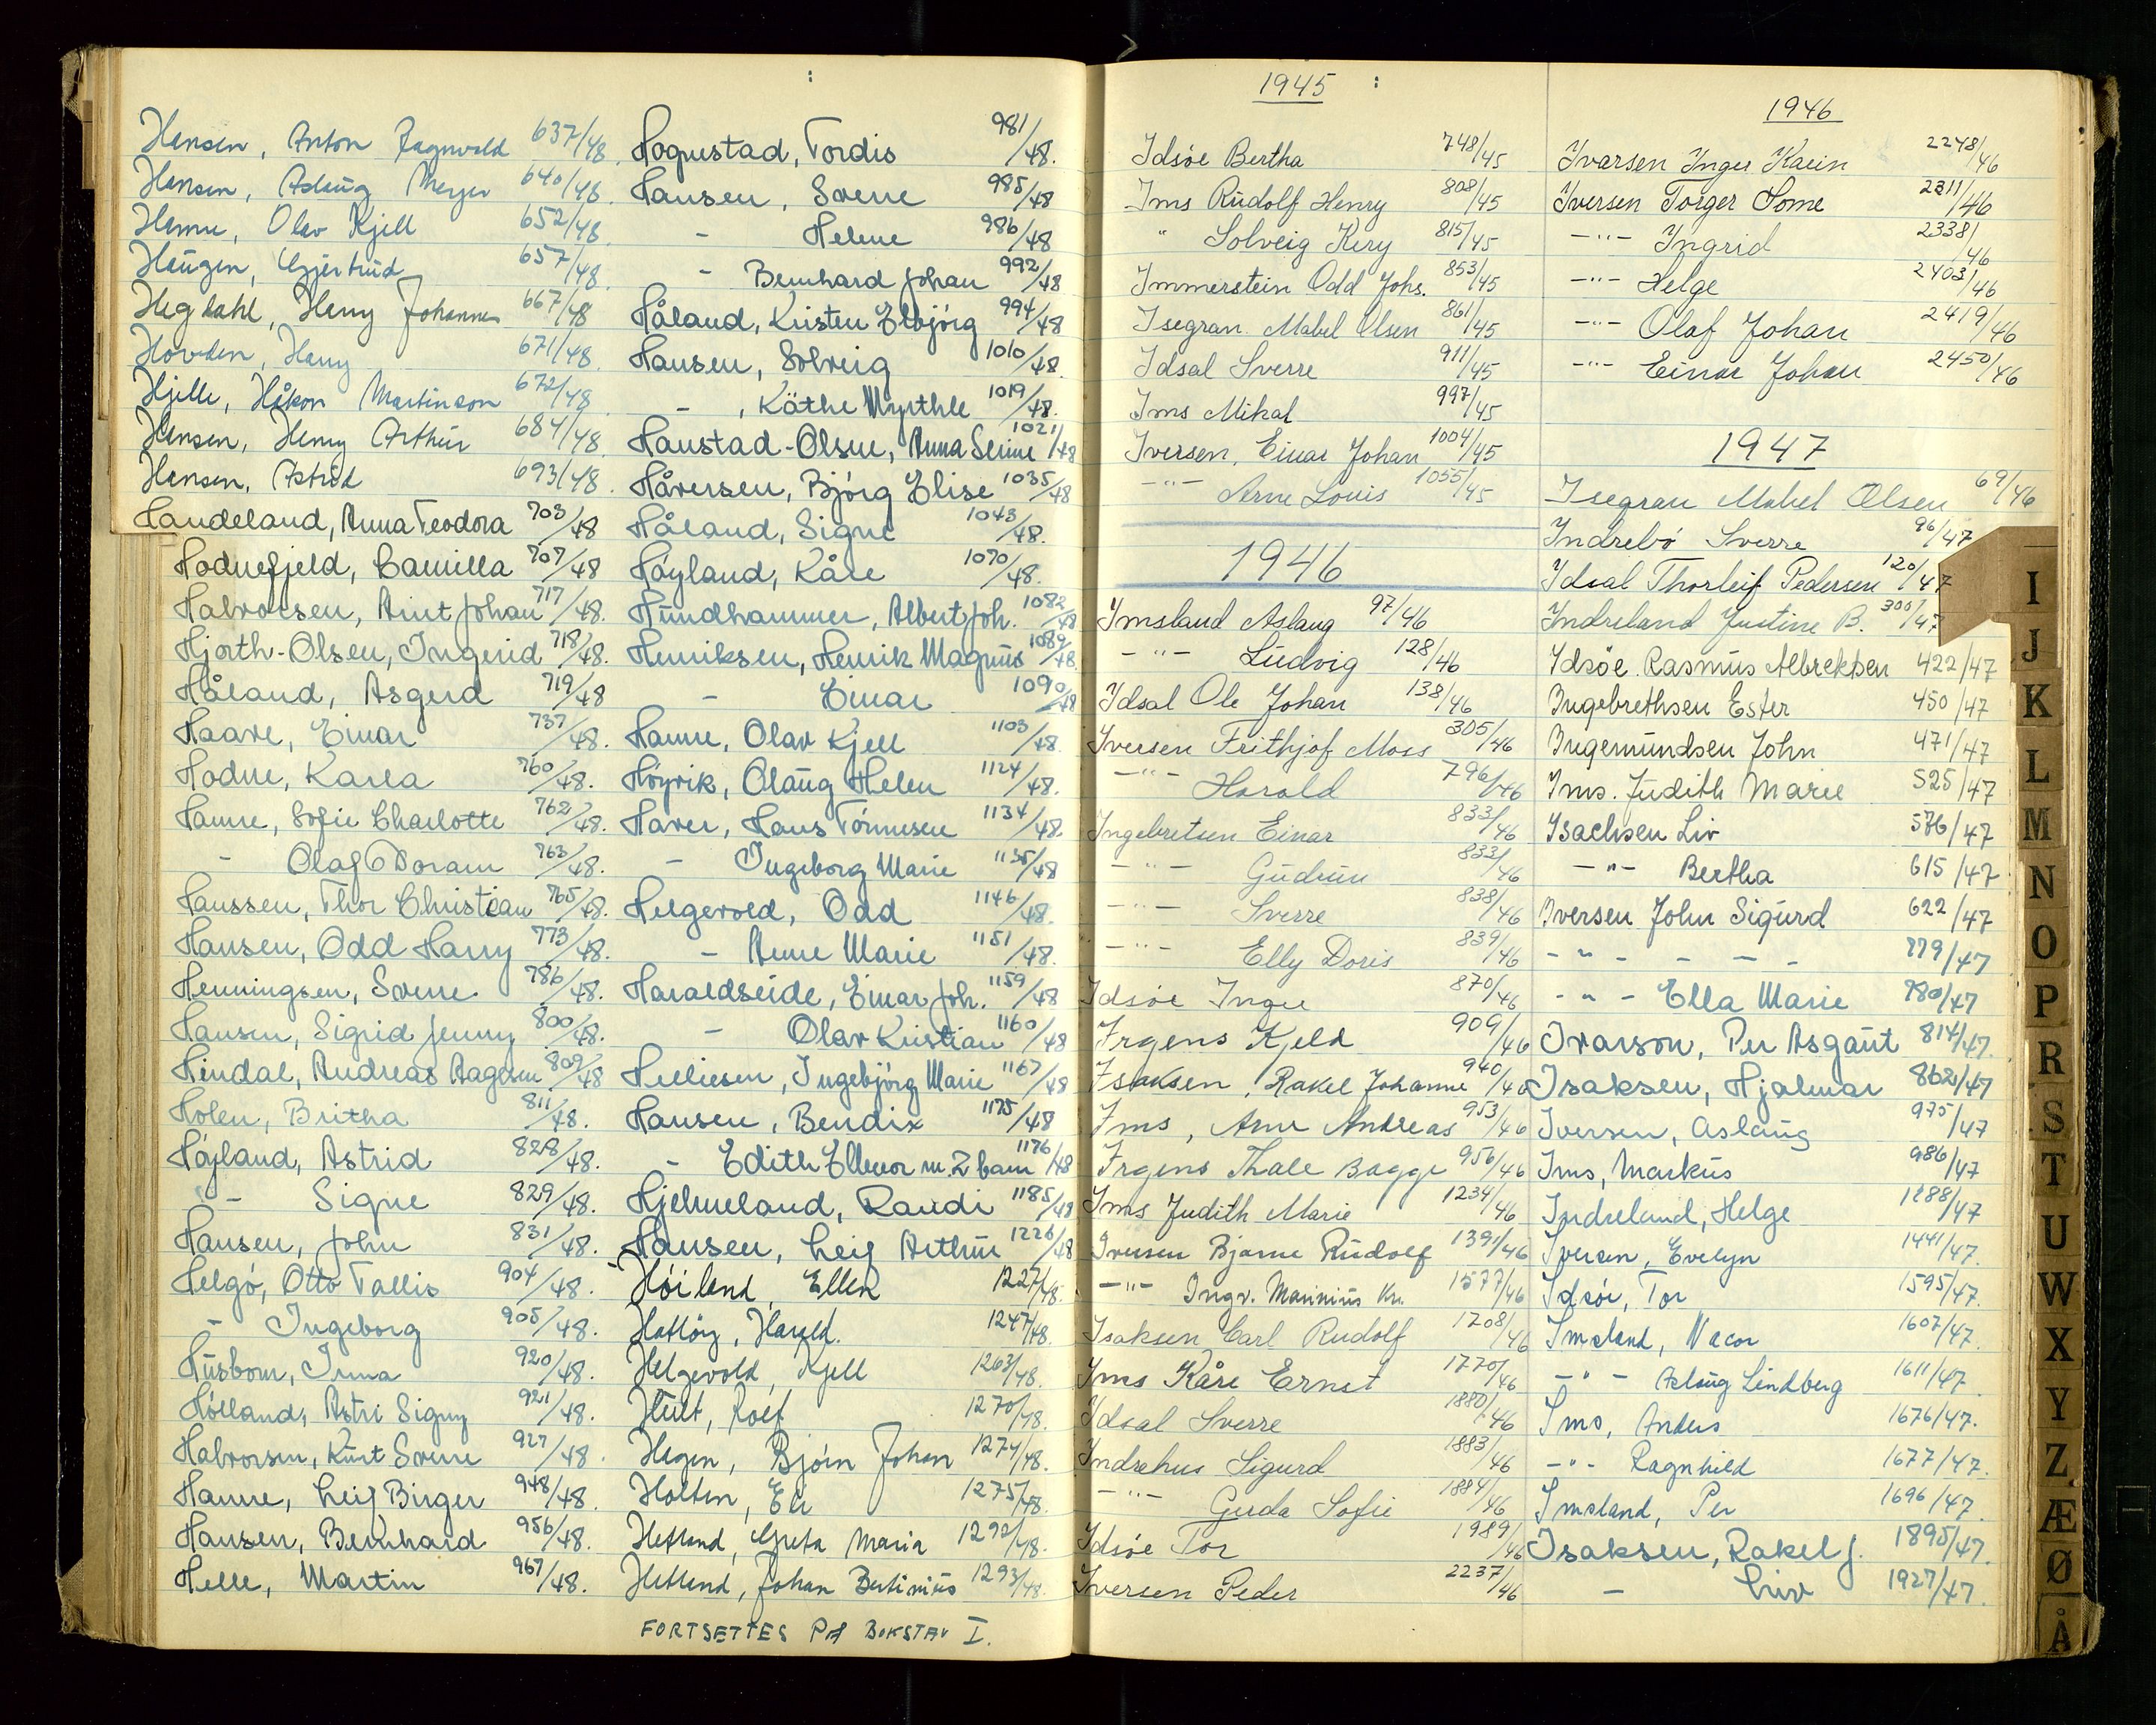 Hansen, Anton Ragnvald 637/48
Hansen, Aslaug Meyer 640/48
Hanne, Olav Kjell 652/48
Haugen, Gjertrud 657/48
Hegdahl, Henry Johannes 667/48
Hovden, Harry 671/48
Hjelle, Håkon Martinson 672/48
Hansen, Henry Arthur 684/48
Hansen, Astrid 693/48
Haudeland, Anna Teodora 703/48
Hodnefjeld, Camilla 707/48
Halvorsen, Arnt Johan 717/48.
Hjorth-Olsen, Ingerid 718/48.
Håland, Asgerd 719/48
Haave, Einar 737/48.
Hodne, Karla 760/48.
Hanne, Sofie Charlotte 762/48.
- Olaf Doram 763/48.
Haussen, Thor Christian 765/48.
Hansen, Odd Harry 773/48.
Henningsen, Sverre 786/48.
Hansen, Sigrid Jenny 800/48.
Hindal, Andreas Aagesen 809/48
Holen, Britha 811/48.
Höyland, Astrid 828/48.
- Signe 829/48.
Hansen, John 831/48.
Helgö, Otto Tallis 904/48.
- Ingeborg 905/48.
Husbom, Inna 920/48.
Hölland, Astri Signy 921/48.
Halvorsen, Kurt Sverre 927/48.
Hanne, Leif Birger 948/48.
Hansen, Bernhard 956/48.
Helle, Martin 967/48.
Hognestad, Tordis 981/48.
Hansen, Sverre 985/48
- Helene 986/48
- Bernhard Johan 992/48
Håland, Kristen Elbjörg 994/48
Hansen, Solveig 1010/48
- , Käthe Myrthle 1019/48.
Haustad-Olsen, Anna Serine 1021/48
Håversen, Björg Elise 1035/48
Håland, Signe 1043/48.
Höyland, Kåre 1070/48.
Hundhammer, Albert Joh. 1082/48
Henriksen, Henrik Magnus 1089/48.
- Einar 1090/48
Hanne, Olav Kjell 1103/48.
Höyvik, Olaug Helen 1124/48.
Haver, Hans Tönnesen 1134/48
- Ingeborg Marie 1135/48
Helgevold, Odd 1146/48.
- Anne Marie 1151/48.
Haraldseide, Einar Joh. 1159/48
- Olav Kristian 1160/48
Helliesen, Ingebjörg Marie 1167/48
Hansen, Bendix 1175/48
- Edith Ellenor m. 2 barn 1176/48
Hjelmeland, Randi 1185/48
Hansen, Leif Arthur 1226/48
Höiland, Ellen 1227/48.
Harald. 1247/48.
Helgevold, Kjell 1263/48.
Hult, Rolf 1270/48.
Hegen, Björn Johan 1274/48.
Holten, Eli 1275/48.
Hetland, Greta Maria 1292/48.
Hetland, Johan Bertinius 1293/48.
FORTSETTES PÅ BOKSTAV I.
1945
Idsöe Bertha 748/45
Ims Rudolf Henry 808/45
" Solveig Kery 815/45
Immerstein Odd Johs. 853/45
Isegran. Mabel Olsen 861/45
Idsal Sverre 911/45
Ims Mikal 997/45
Iversen, Einar Johan 1004/45
-"- Arne Louis 1055/45
1946
Imsland Aslaug 97/46
-"- Ludvig 128/46
Idsal Ole Johan 138/46
Iversen Frithjof Moss 305/46
-"- Harald 796/46
Ingebretsen Einar 833/46
-"- Gudrun 833/46
-"- Sverre 838/46
-"- Elly Doris 839/46
Idsöe Inger 870/46
Irgens Kjeld 909/46
Isaksen, Rakel Johanne 940/46
Ims, Arne Andreas 953/46
Irgens Thale Bagge 956/46
Ims Judith Marie 1234/46
Iversen Bjarne Rudolf 1391/46
-"- Ingv. Marinius Kr. 1577/46
Isaksen Carl Rudolf 1708/46
Ims Kåre Ernst 1770/46
Idsal Sverre 1880/46
Indrehus Sigurd 1883/46
-"- Gerda Sofie 1884/46
Idsöe Tor 1989/46
Iversen Peder 2237/46
1946
Ivarsen Inger Karin 2248/46
Iversen Torger Some 2311/46
-"- Ingrid 2338/46
-"- Helge 2403/46
-"- Olaf Johan 2419/46
-"- Einar Johan 2450/46
1947
Isegran Mabel Olsen 69/46
Indrebö Sverre 96/47
Idsal Thorleif Pedersen 120/47
Indreland Justine B. 300/47
Idsöe. Rasmus Albrektsen 422/47
Ingebrethsen Ester 450/47
Ingemundsen John 471/47
Ims. Judith Marie 525/47
Isachsen Liv 576/47
-"- Bertha 615/47
Iversen John Sigurd 622/47
-"- - - - 779/47
-"- Ella Marie 780/47
Ivarson, Per Asgaut 814/47.
Isaksen, Hjalmar 862/47
Iversen, Aslaug 975/47
Ims, Markus 986/47
Indreland, Helge 1288/47
Iversen, Evelyn 1441/47.
Idsöe, Tor 1595/47.
Imsland, Nacor 1607/47.
-"- Aslaug Lindberg 1611/47
Ims, Anders 1676/47.
-"- Ragnhild 1677/47.
Imsland, Per 1696/47.
Isaksen, Rakel J. 1895/47.
- Liv 1927/47.
I
J
K
L
M
N
O
P
R
S
T
U
W
X
Y
Z
Æ
Ø
Å